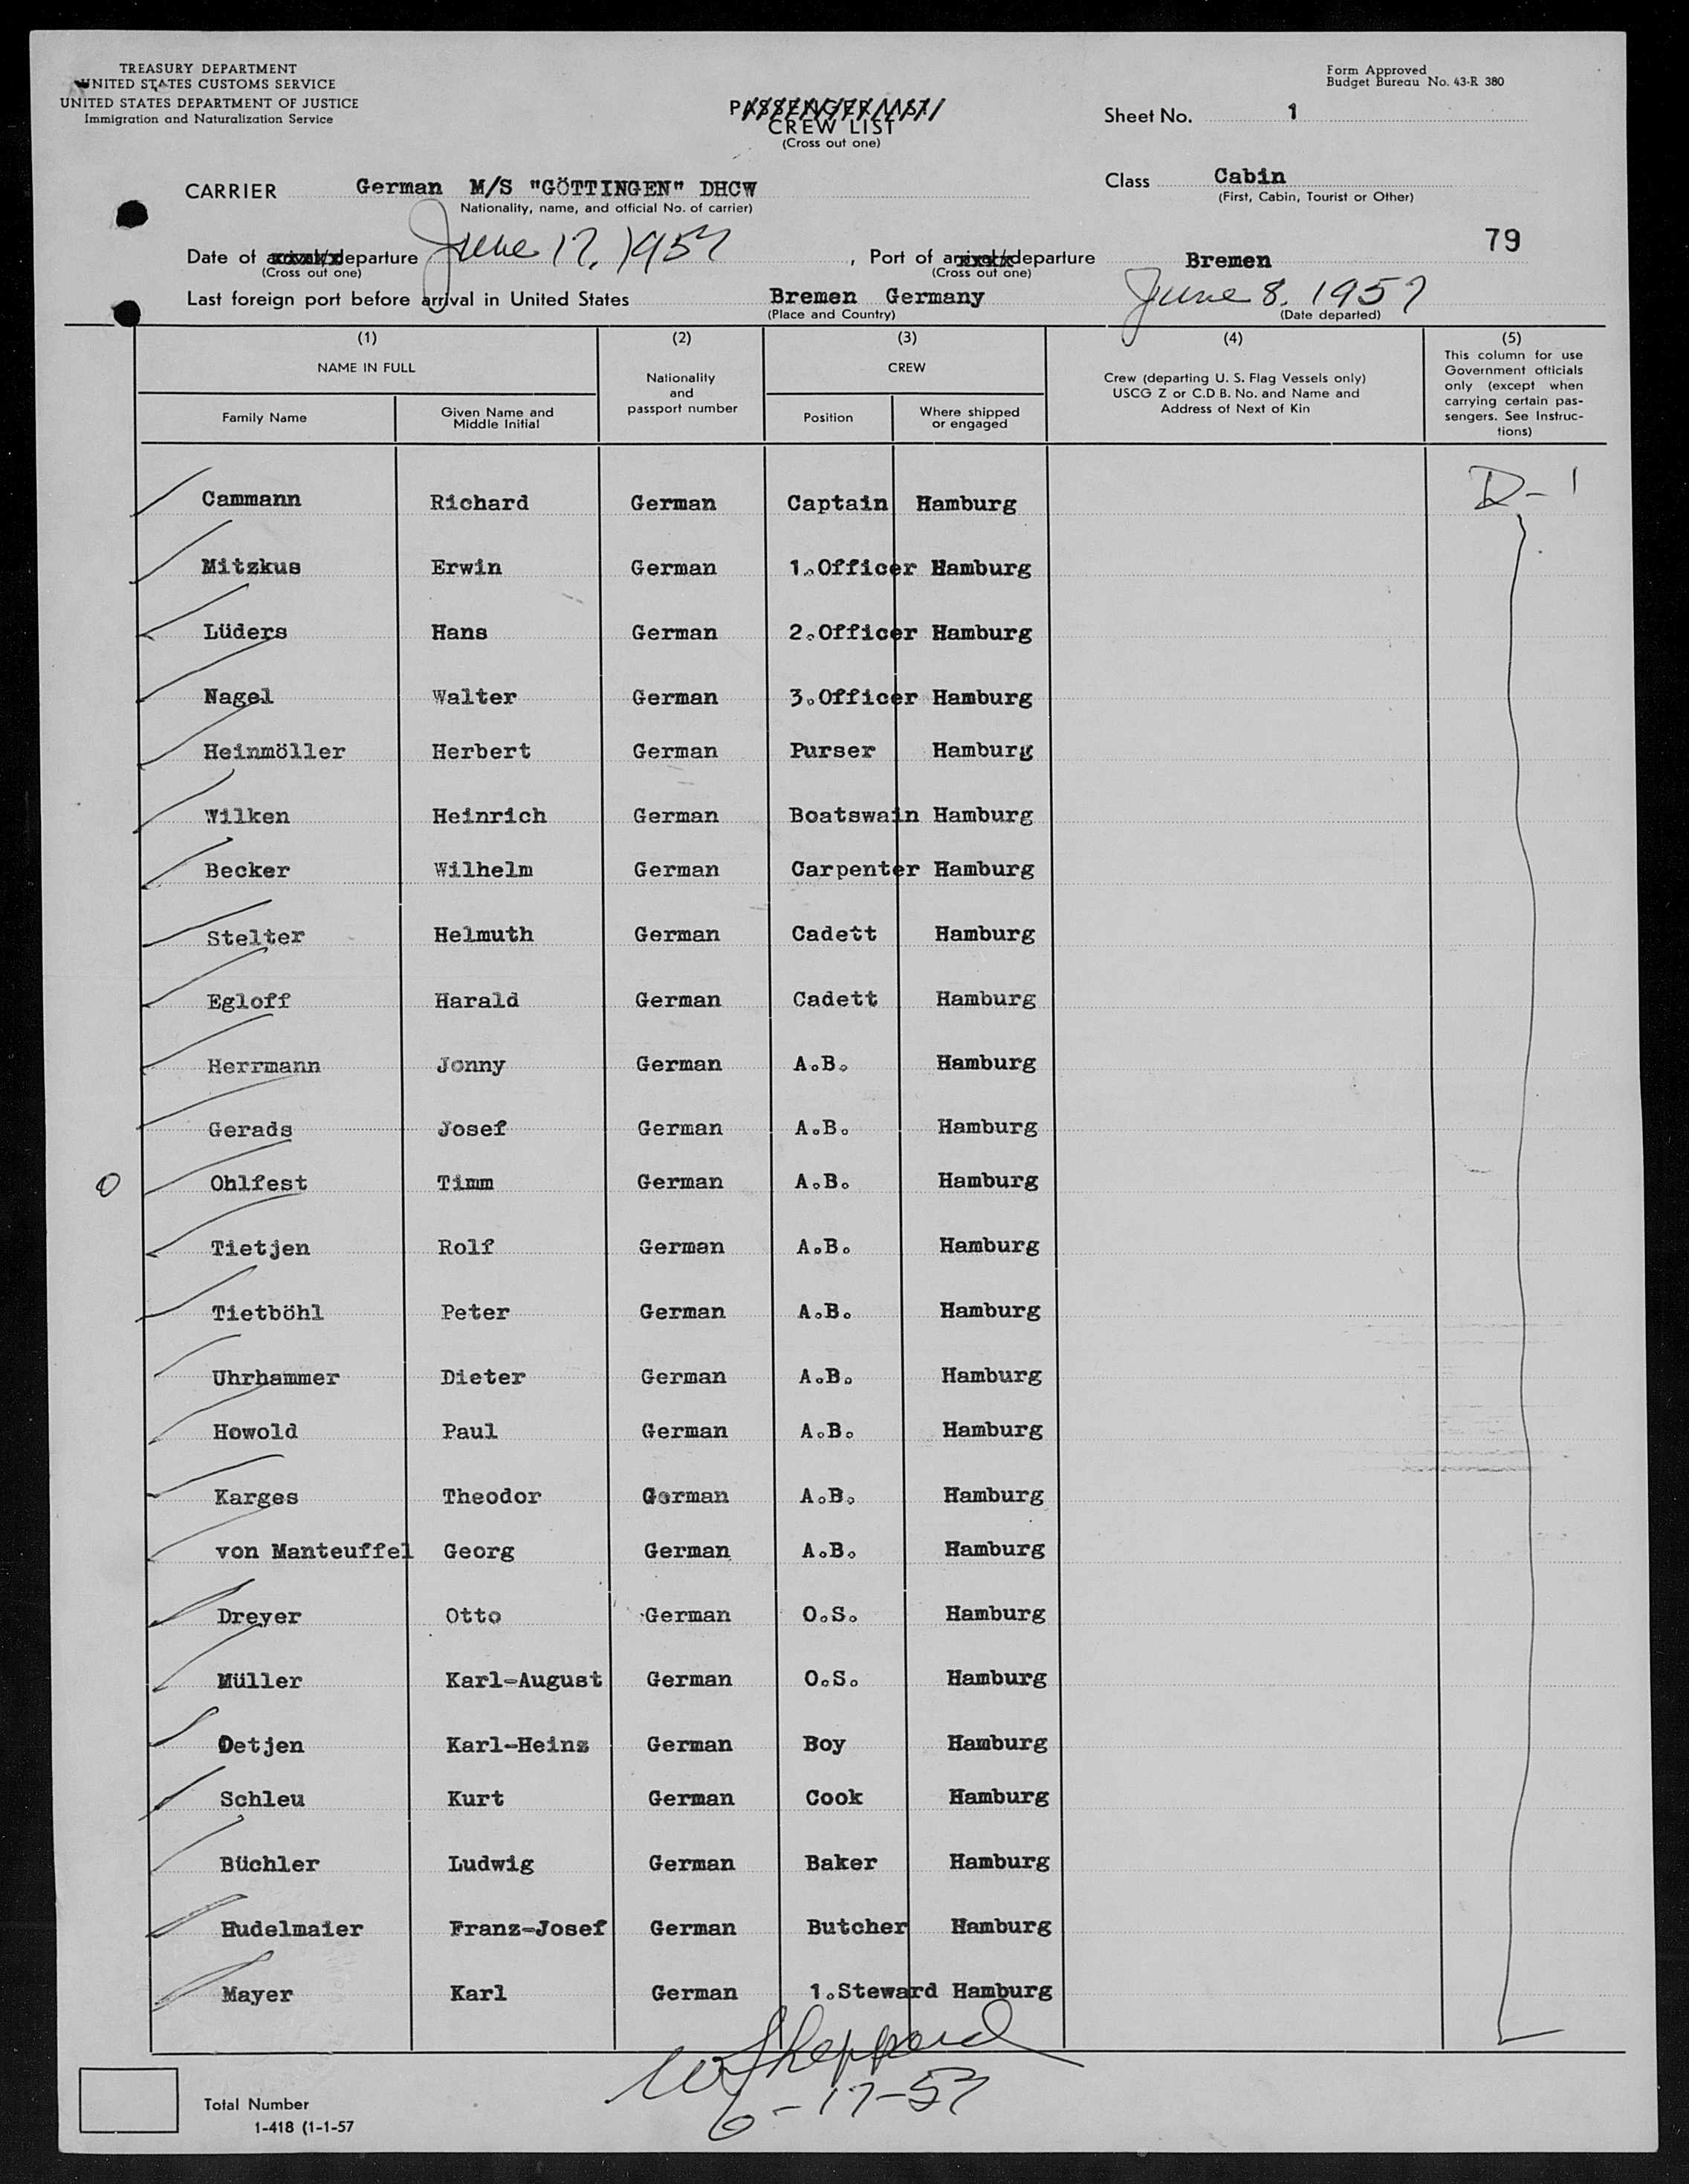 TREASURY DEPARTMENT
UNITED STATES CUSTOMS SERVICE
UNITED STATES DEPARTMENT OF JUSTICE
Immigration and Naturalization Service
Form Approved
Budget Bureau No. 43-R 380
PASSENGER LIST
CREW LIST
(Cross out one)
Sheet No. 1
CARRIER German M/S "GÖTTINGEN" DHCW
Nationality, name, and official No. of carrier)
Class Cabin
(First, Cabin, Tourist or Other)
79
Date of departure June 17, 1957, Port of departure Bremen
(Cross out one) (Cross out one)
Last foreign port before arrival in United States Bremen Germany June 8, 1957
(Place and Country) (Date departed)
(1) (2) (3) (4) (5)
NAME IN FULL
Family Name
Given Name and Middle Initial
Nationality and passport number
CREW
Position
Where shipped or engaged
Crew (departing U. S. Flag Vessels only)
USCG Z or C.D.B. No. and Name and
Address of Next of Kin
This column for use
Government officials
only (except when
carrying certain pas-
sengers. See Instruc-
tions)
Cammann Richard German Captain Hamburg D-1
Mitzkus Erwin German 1.Officer Hamburg
Lüders Hans German 2.Officer Hamburg
Nagel Walter German 3.Officer Hamburg
Heinmöller Herbert German Purser Hamburg
Wilken Heinrich German Boatswain Hamburg
Becker Wilhelm German Carpenter Hamburg
Stelter Helmuth German Cadett Hamburg
Egloff Harald German Cadett Hamburg
Herrmann Jonny German A.B. Hamburg
Gerads Josef German A.B. Hamburg
O Ohlfest Timm German A.B. Hamburg
Tietjen Rolf German A.B. Hamburg
Tietböhl Peter German A.B. Hamburg
Uhrhammer Dieter German A.B. Hamburg
Howold Paul German A.B. Hamburg
Karges Theodor German A.B. Hamburg
von Manteuffel Georg German A.B. Hamburg
Dreyer Otto German O.S. Hamburg
Müller Karl-August German O.S. Hamburg
Detjen Karl-Heinz German Boy Hamburg
Schleu Kurt German Cook Hamburg
Büchler Ludwig German Baker Hamburg
Hudelmaier Franz-Josef German Butcher Hamburg
Mayer Karl German 1.Steward Hamburg
W Sheppard
6-17-57
Total Number
1-418 (1-1-57